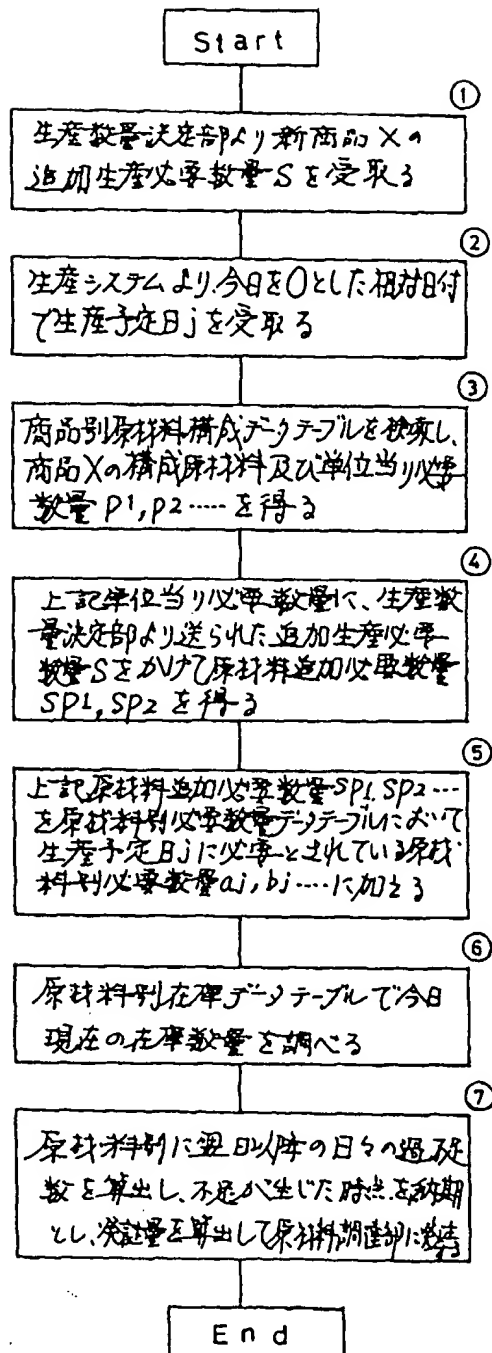 Start
①
生産数量決定部より新商品Xの
追加生産必要数量Sを受取る
②
生産システムより、今日を0とした相対日付
で生産予定日jを受取る
③
商品別原材料構成データテーブルを検索し、
商品Xの構成原材料及び単位当り必要
数量P1,P2‥‥‥を得る
④
上記単位当り必要数量に、生産数
量決定部より送られた追加生産必要
数量Sをかけて原材料追加必要数量
SP1,SP2を得る
⑤
上記原材料追加必要数量SP1,SP2‥‥
を原材料別必要数量データテーブルにおいて
生産予定日jに必要とされている原材
料別必要数量aj,bj‥‥‥に加える
⑥
原材料別在庫データテーブルで今日
現在の在庫数量を調べる
⑦
原材料別に翌日以降の日々の過不足
数を算出し、不足が生じた時点を納期
とし、発注量を算出して原材料調達部に
End